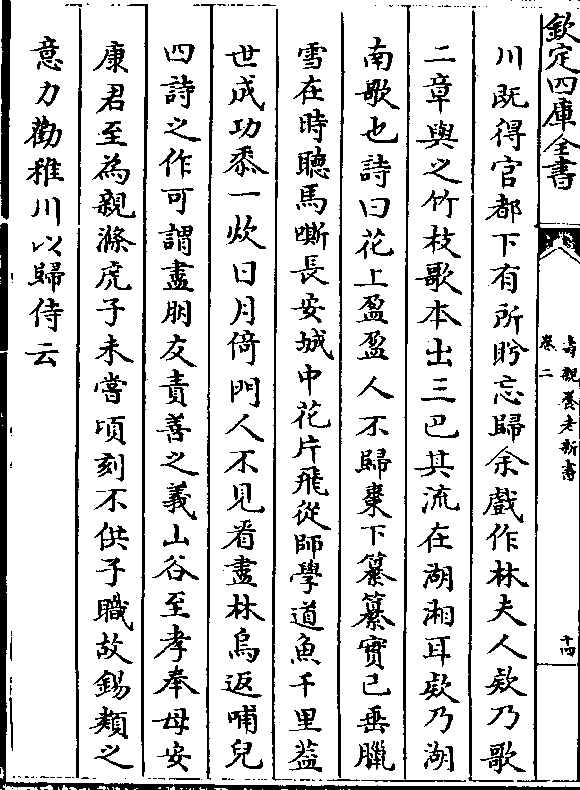 欽定四庫全書
壽親養老新書
卷二
十四
川既得官都下有所盻忘歸余戲作林夫人欸乃歌
二章與之竹枝歌本出三巴其流在湖湘耳欸乃湖
南歌也詩曰花上盈盈人不歸棗下纂纂實已垂臘
雪在時聽馬嘶長安城中花片飛從師學道魚千里葢
世成功黍一炊日月倚門人不見看盡林烏返哺兒
四詩之作可謂盡朋友責善之義山谷至孝奉母安
康君至為親滌虎子未嘗頃刻不供子職故錫類之
意力勸稚川以歸侍云